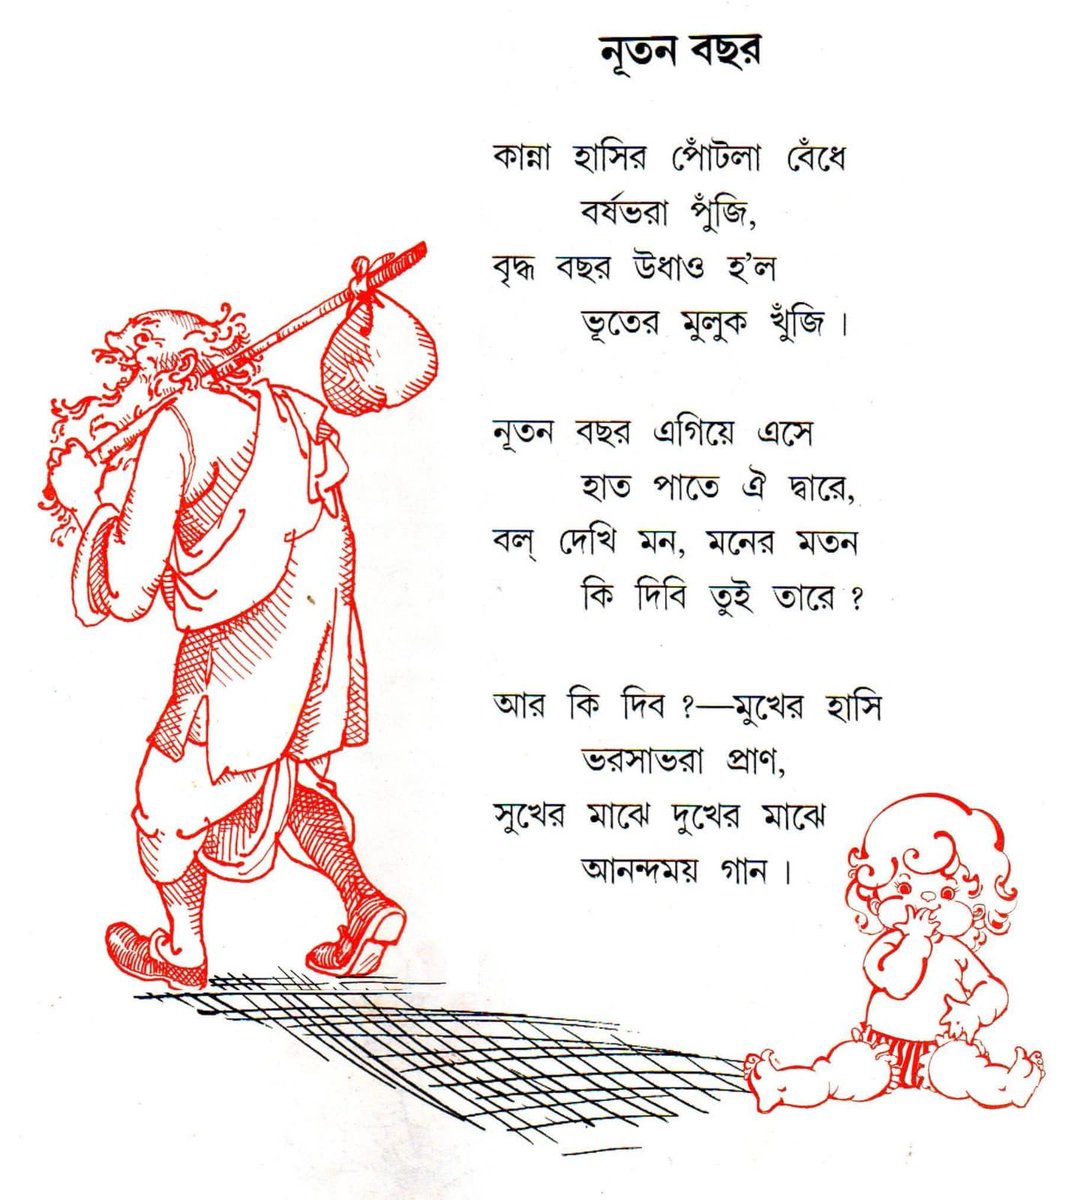 নূতন বছর
কান্না হাসির পোঁটলা বেঁধে
বর্ষভরা পুঁজি,
বৃদ্ধ বছর উধাও হ'ল
ভূতের মুলুক খুঁজি।
নূতন বছর এগিয়ে এসে
হাত পাতে ঐ দ্বারে,
বল্ দেখি মন, মনের মতন
কি দিবি তুই তারে ?
আর কি দিব ?—মুখের হাসি
ভরসাভরা প্রাণ,
সুখের মাঝে দুখের মাঝে
আনন্দময় গান।